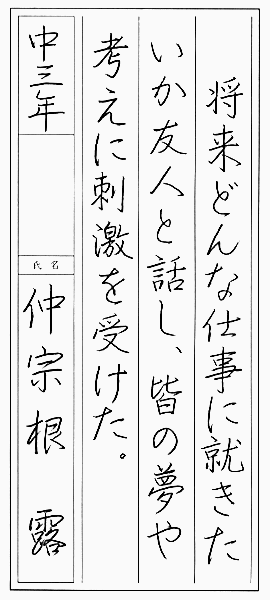 将来どんな仕事に就きた
いか友人と話し、皆の夢や
考えに刺激を受けた。
中三年
氏名
仲宗根 露